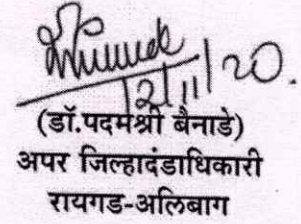 12/11/20.
(डॉ.पदमश्री बैनाडे)
अपर जिल्हादंडाधिकारी
रायगड-अलिबाग